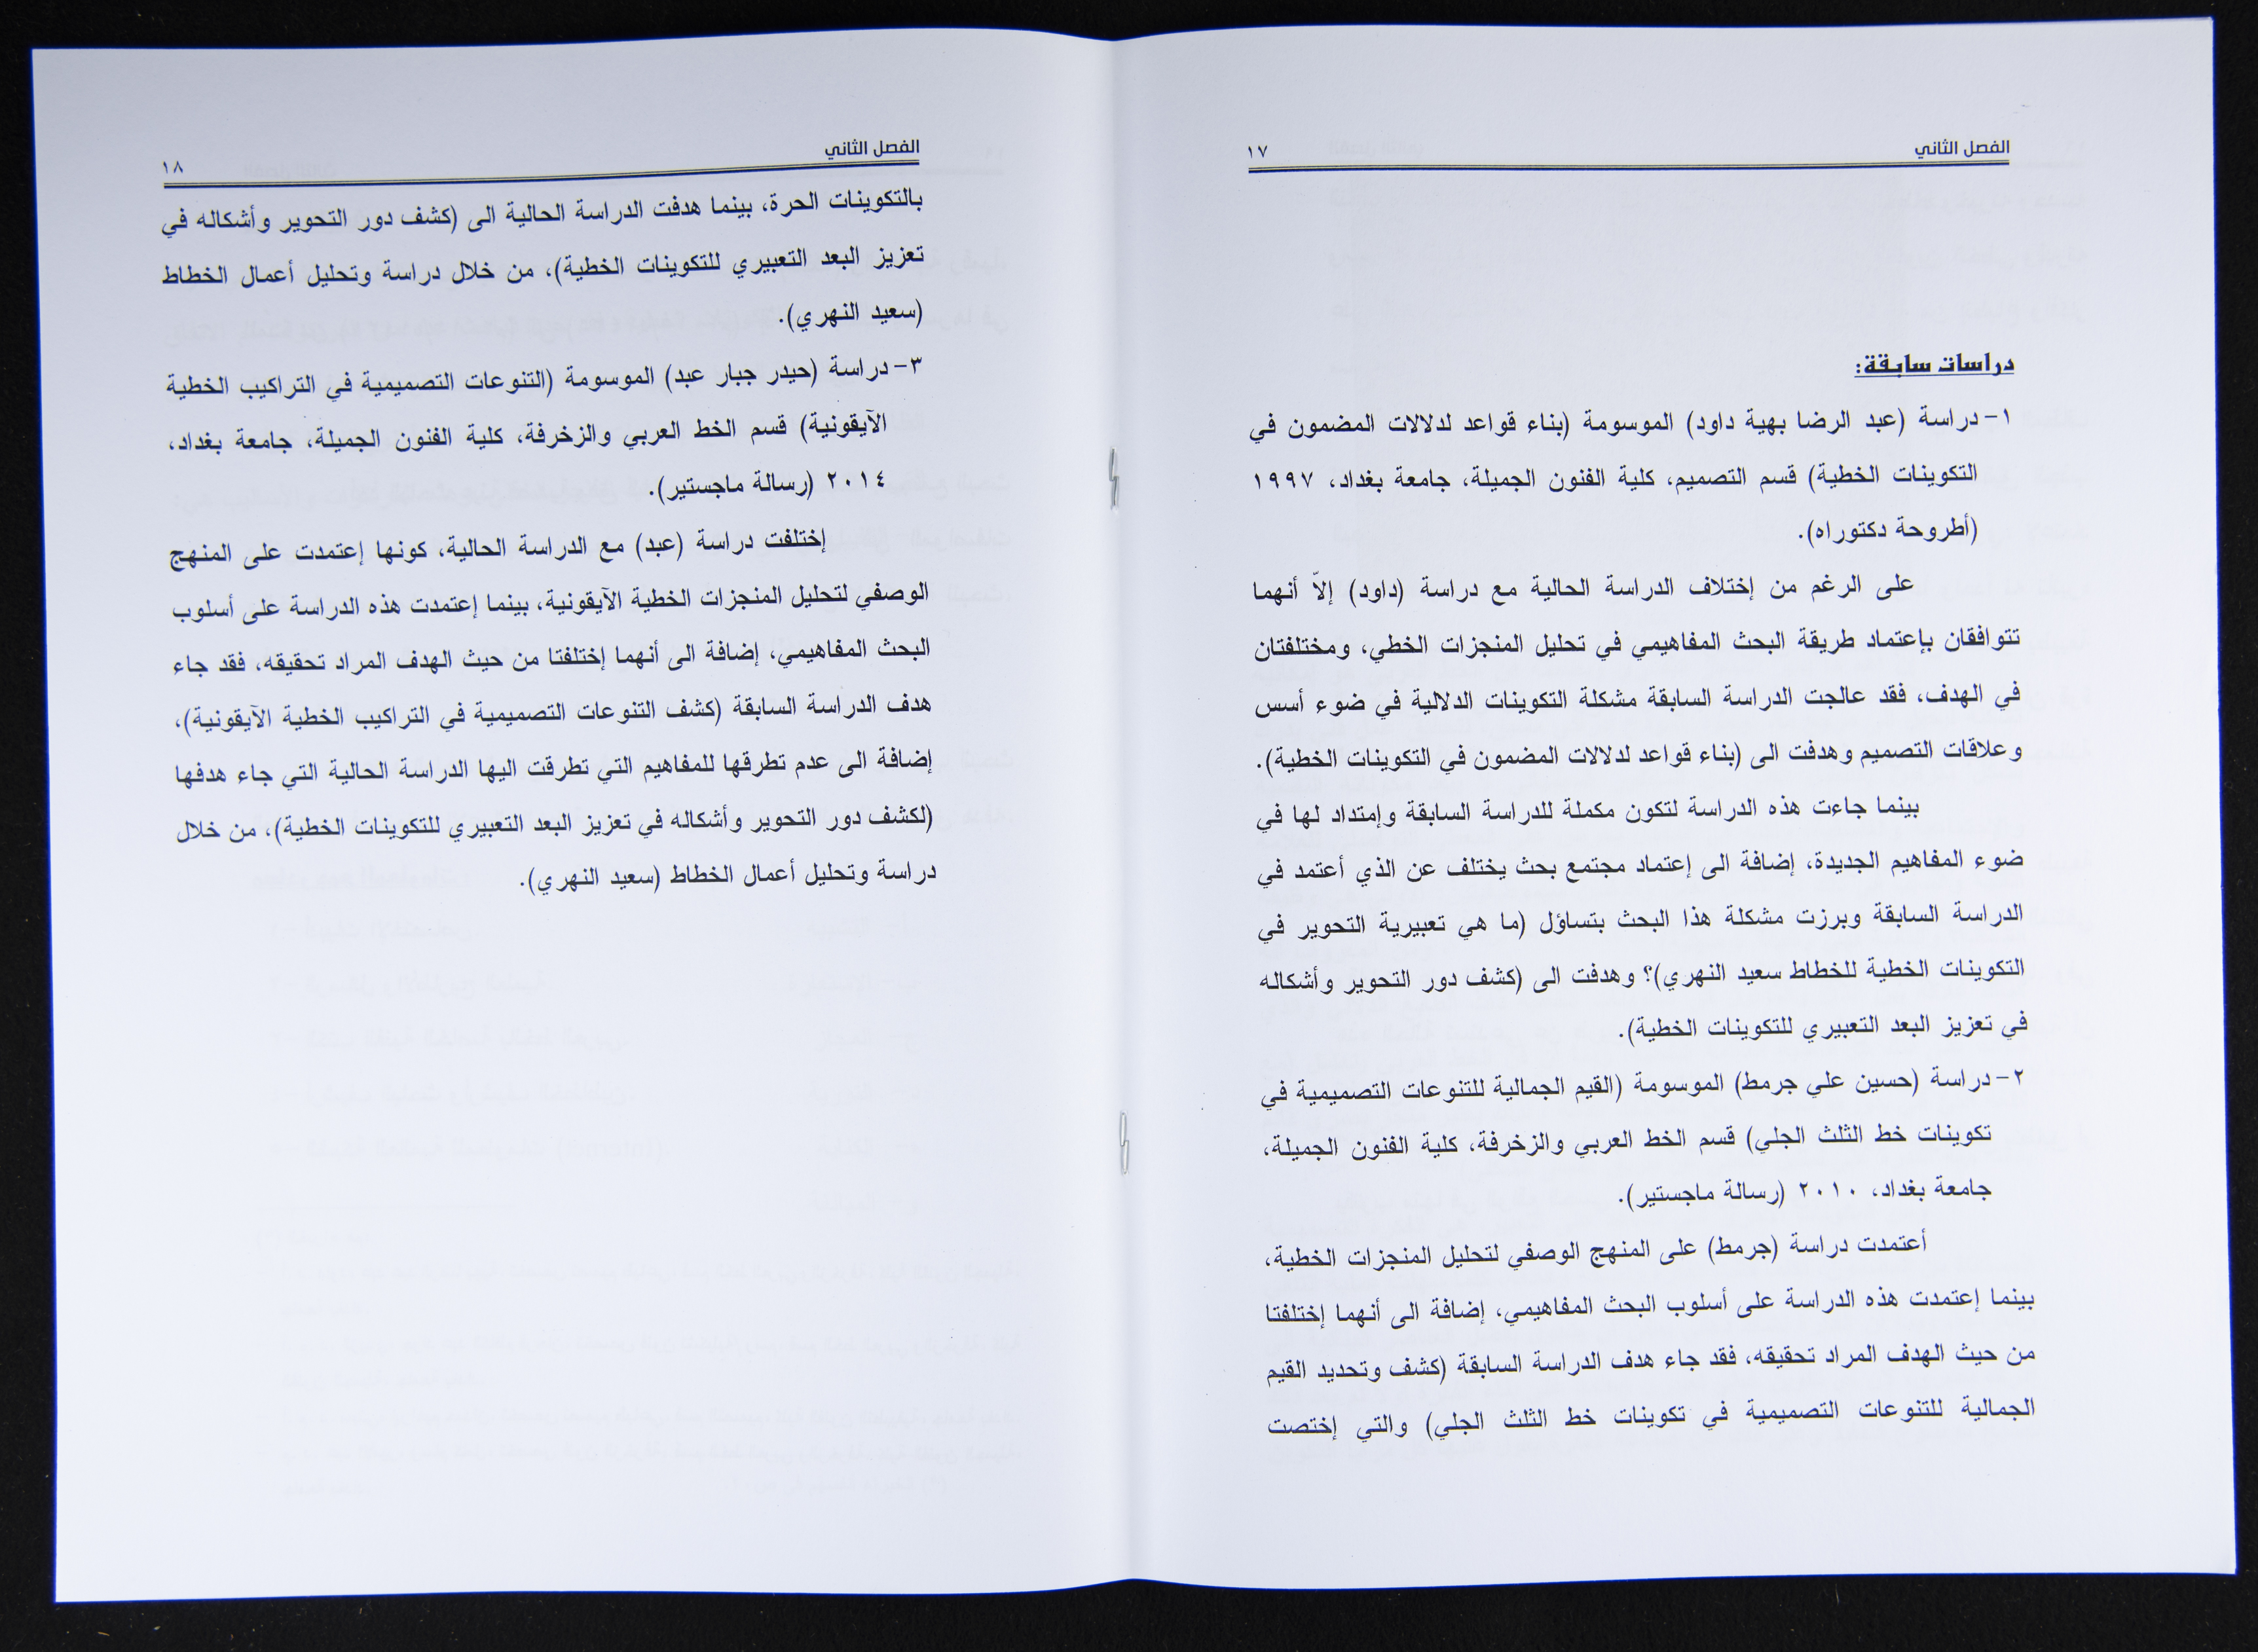 الفصل الثاني ١٧
دراسات سابقة:
١- دراسة (عبد الرضا بهية داود) الموسومة (بناء قواعد لدلالات المضمون في
التكوينات الخطية) قسم التصميم، كلية الفنون الجميلة، جامعة بغداد، ١٩٩٧
(أطروحة دكتوراه).
على الرغم من إختلاف الدراسة الحالية مع دراسة (داود) إلاّ أنهما
تتوافقان بإعتماد طريقة البحث المفاهيمي في تحليل المنجزات الخطي، ومختلفتان
في الهدف، فقد عالجت الدراسة السابقة مشكلة التكوينات الدلالية في ضوء أسس
وعلاقات التصميم وهدفت الى (بناء قواعد لدلالات المضمون في التكوينات الخطية).
بينما جاءت هذه الدراسة لتكون مكملة للدراسة السابقة وإمتداد لها في
ضوء المفاهيم الجديدة، إضافة الى إعتماد مجتمع بحث يختلف عن الذي أعتمد في
الدراسة السابقة وبرزت مشكلة هذا البحث بتساؤل (ما هي تعبيرية التحوير في
التكوينات الخطية للخطاط سعيد النهري)؟ وهدفت الى (كشف دور التحوير وأشكاله
في تعزيز البعد التعبيري للتكوينات الخطية).
٢- دراسة (حسين علي جرمط) الموسومة (القيم الجمالية للتنوعات التصميمية في
تكوينات خط الثلث الجلي) قسم الخط العربي والزخرفة، كلية الفنون الجميلة،
جامعة بغداد، ٢٠١٠ (رسالة ماجستير).
أعتمدت دراسة (جرمط) على المنهج الوصفي لتحليل المنجزات الخطية،
بينما إعتمدت هذه الدراسة على أسلوب البحث المفاهيمي، إضافة الى أنهما إختلفتا
من حيث الهدف المراد تحقيقه، فقد جاء هدف الدراسة السابقة (كشف وتحديد القيم
الجمالية للتنوعات التصميمية في تكوينات خط الثلث الجلي) والتي إختصت
الفصل الثاني ١٨
بالتكوينات الحرة، بينما هدفت الدراسة الحالية الى (كشف دور التحوير وأشكاله في
تعزيز البعد التعبيري للتكوينات الخطية)، من خلال دراسة وتحليل أعمال الخطاط
(سعيد النهري).
٣- دراسة (حيدر جبار عبد) الموسومة (التنوعات التصميمية في التراكيب الخطية
الآيقونية) قسم الخط العربي والزخرفة، كلية الفنون الجميلة، جامعة بغداد،
٢٠١٤ (رسالة ماجستير).
إختلفت دراسة (عبد) مع الدراسة الحالية، كونها إعتمدت على المنهج
الوصفي لتحليل المنجزات الخطية الآيقونية، بينما إعتمدت هذه الدراسة على أسلوب
البحث المفاهيمي، إضافة الى أنهما إختلفتا من حيث الهدف المراد تحقيقه، فقد جاء
هدف الدراسة السابقة (كشف التنوعات التصميمية في التراكيب الخطية الآيقونية)،
إضافة الى عدم تطرقها للمفاهيم التي تطرقت اليها الدراسة الحالية التي جاء هدفها
(لكشف دور التحوير وأشكاله في تعزيز البعد التعبيري للتكوينات الخطية)، من خلال
دراسة وتحليل أعمال الخطاط (سعيد النهري).